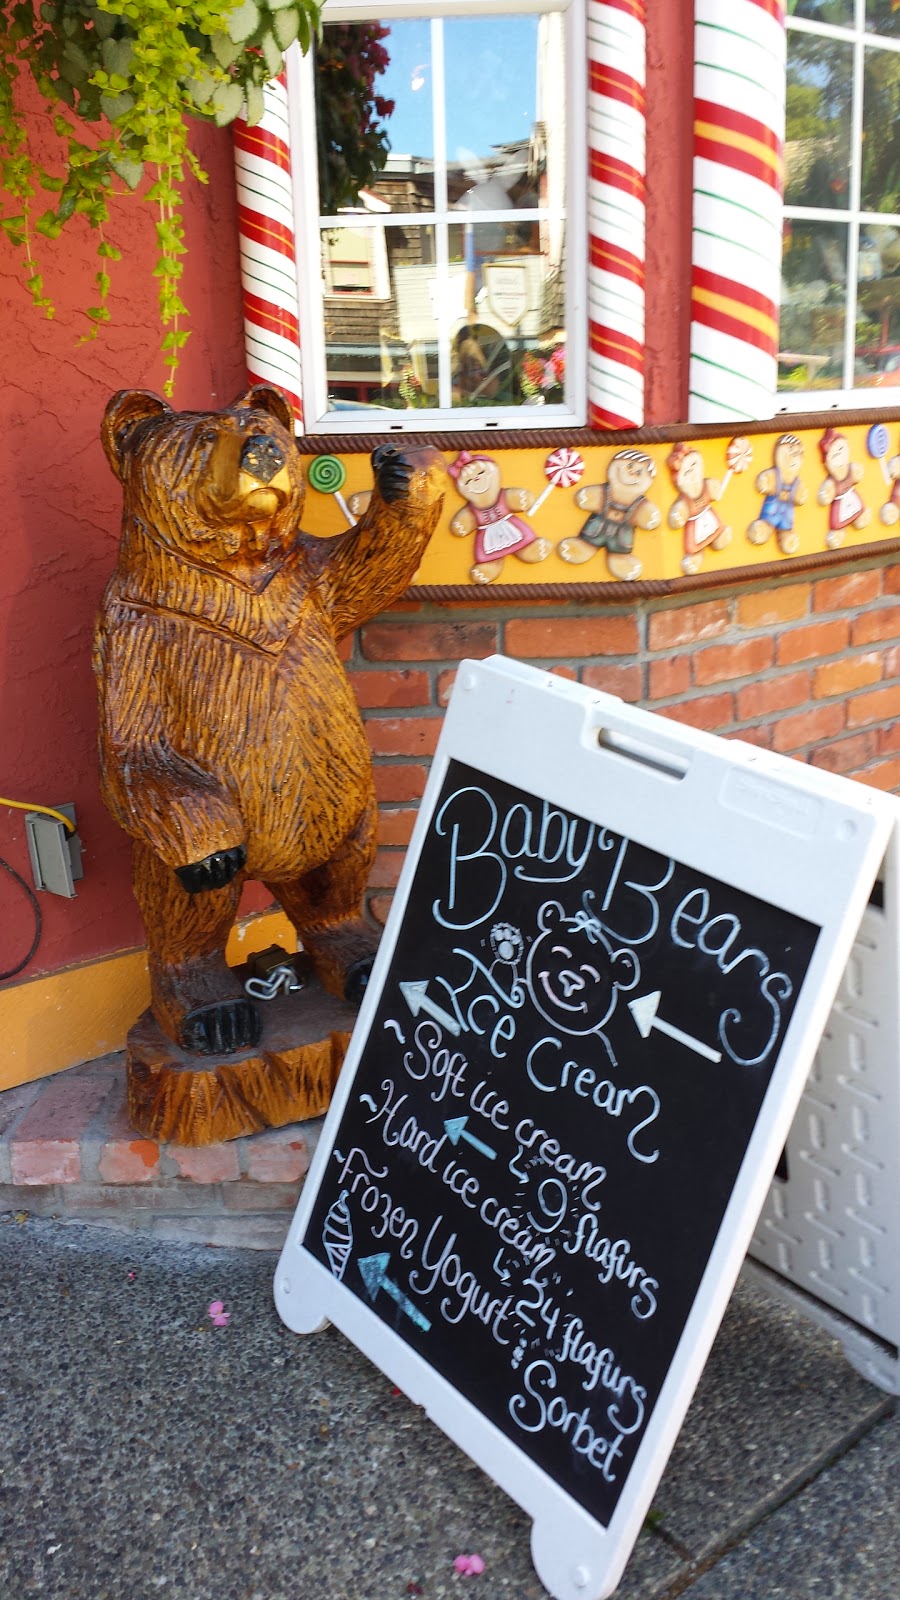 Baby Bears
Ice Cream
~Soft ice cream
9 flafurs
~Hard ice cream
24 flafurs
~Frozen Yogurt &
Sorbet